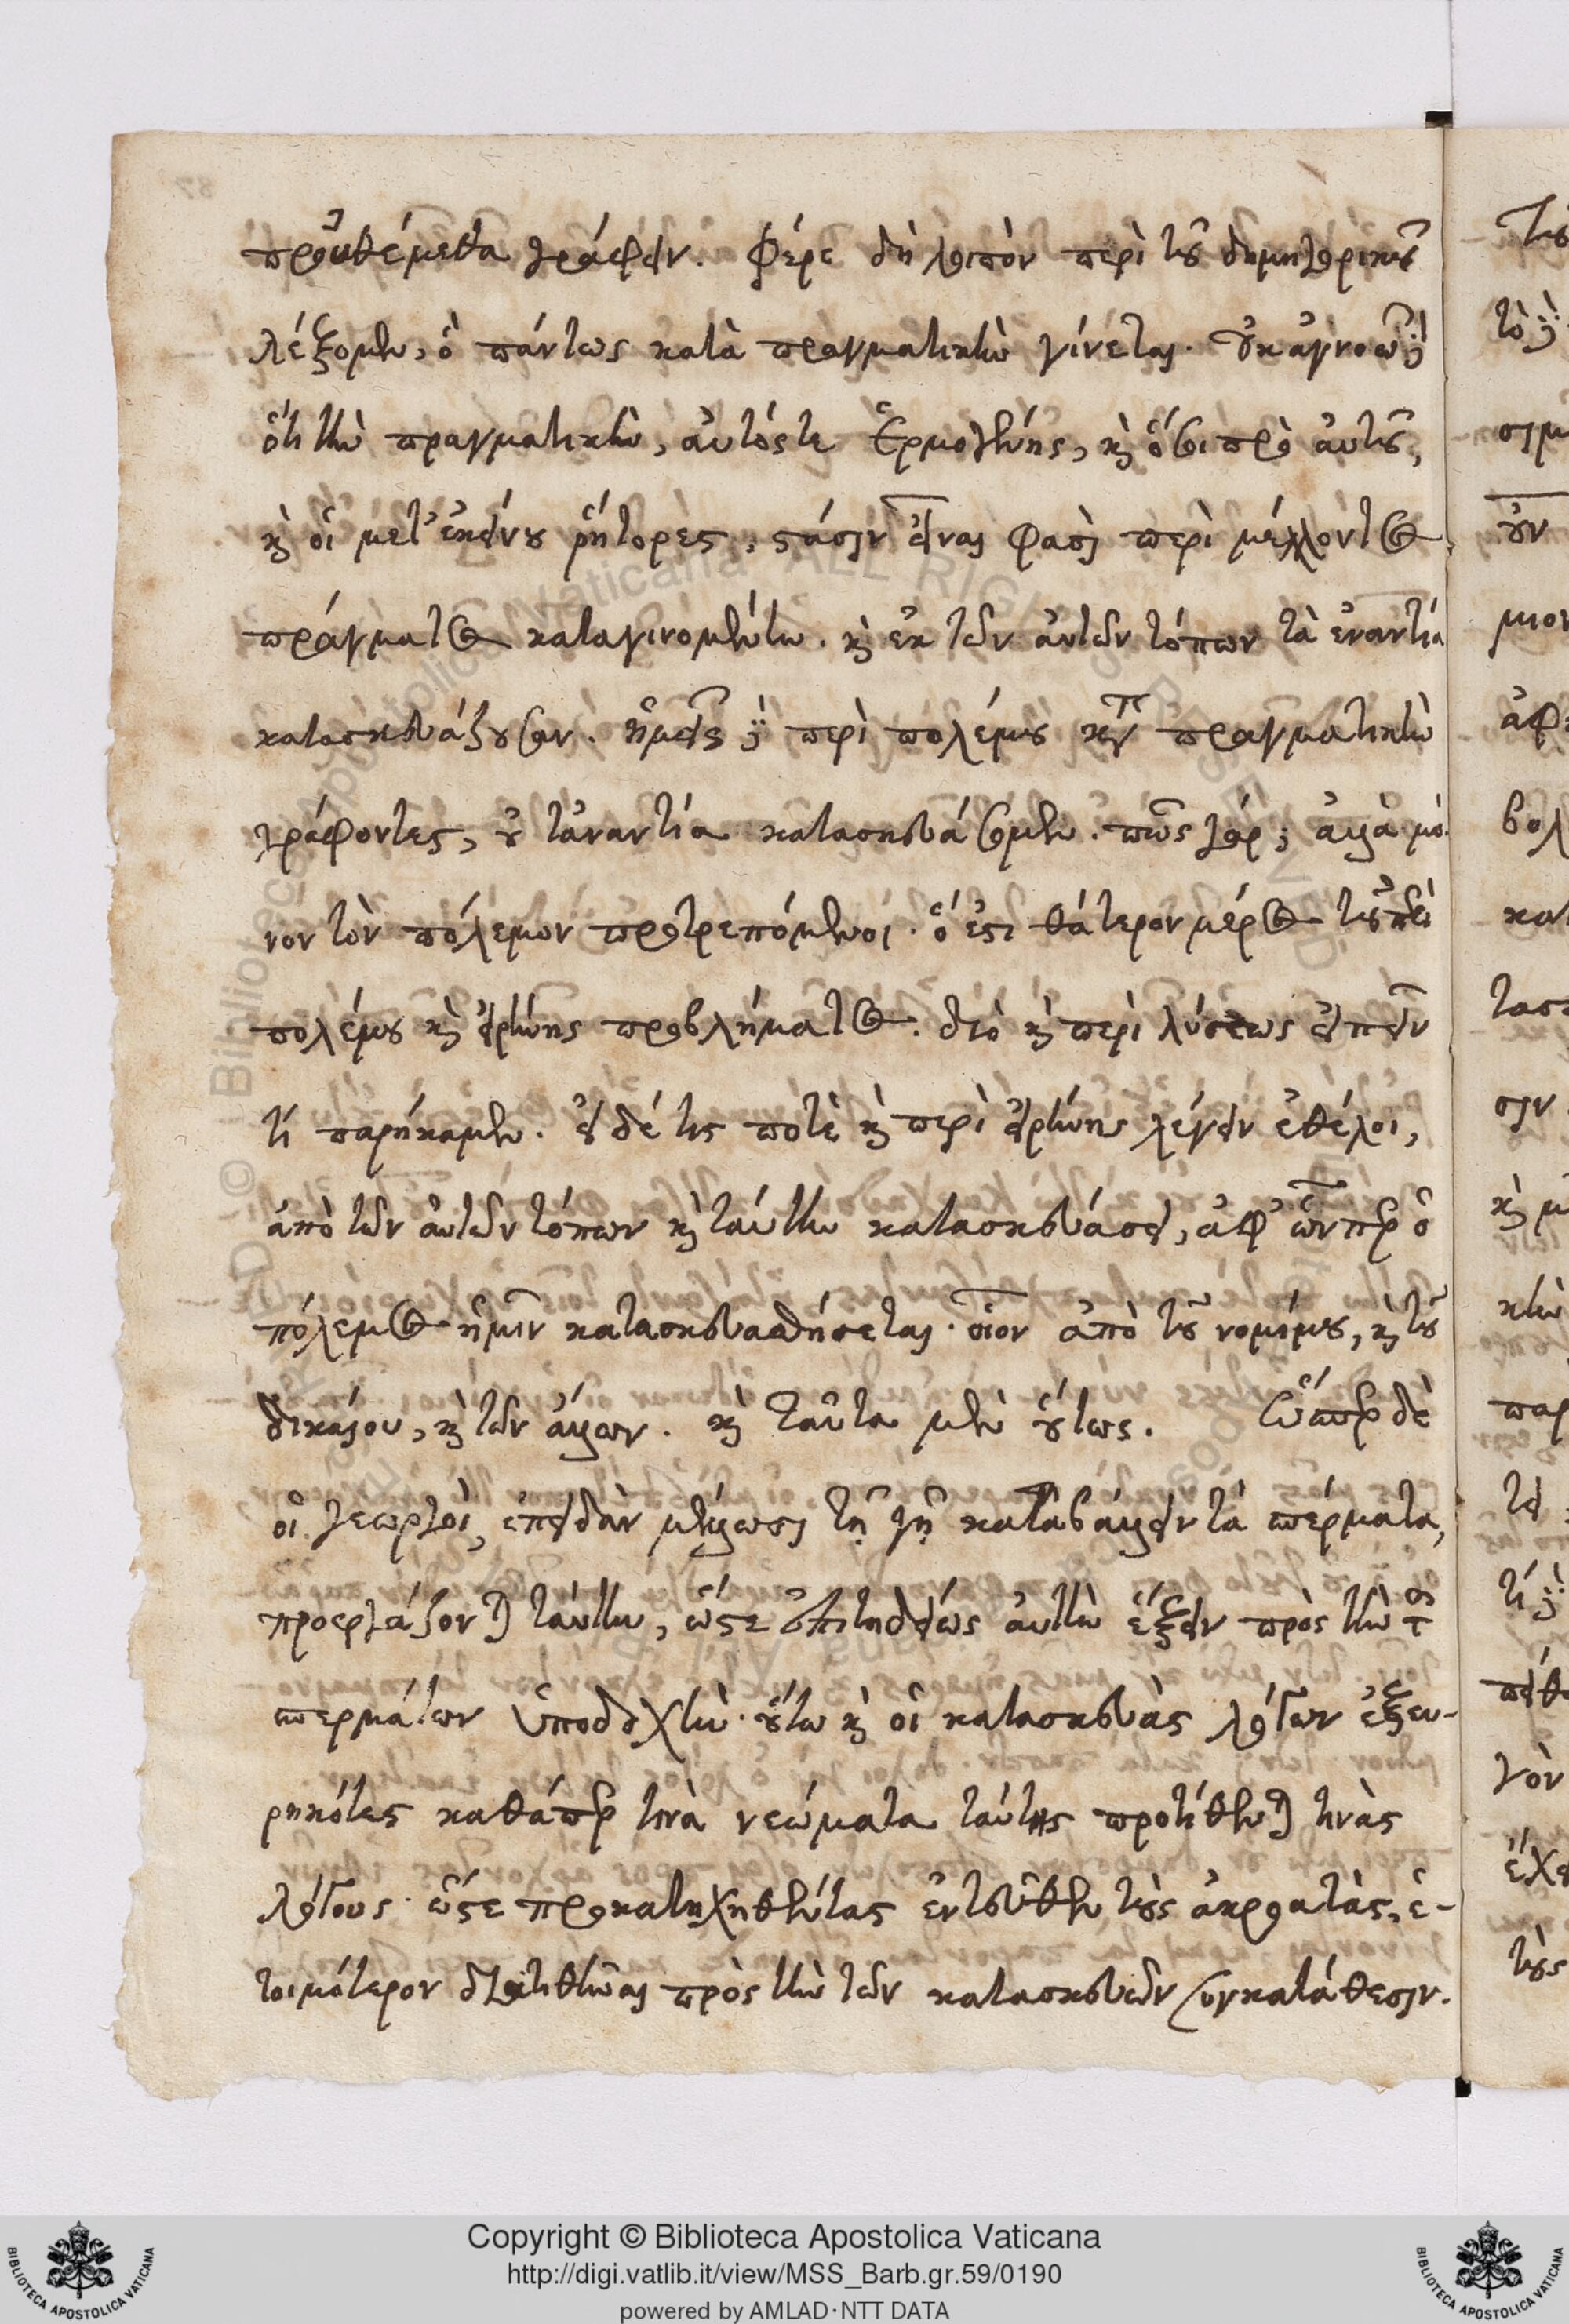 προὐθέμεθα γράφειν. Φέρε δὴ λοιπὸν περὶ τοῦ δημηγορικοῦ
λέξομεν, ὃ πάντως κατὰ πραγματικὴν γίνεται. οὐκ ἀγνοῶ δὲ
ὅτι τὴν πραγματικὴν, αὐτός τε Ἑρμογένης, καὶ ὅσοι πρὸ αὐτοῦ,
καὶ οἱ μετ' ἐκείνου ῥήτορες, στάσιν εἶναι φασὶ περὶ μέλλοντος
πράγματος καταγινομένην. καὶ ἐκ τῶν αὐτῶν τόπων τὰ ἐναντία
κατασκευάζουσαν. ἡμεῖς δὲ περὶ πολέμου κατὰ πραγματικὴν
γράφοντες, οὐ τἀναντία κατασκευάσομεν. πῶς γάρ; ἀλλὰ μό-
νον τὸν πόλεμον προτρεπόμενοι. ὅ ἐστι θάτερον μέρος τοῦ περὶ
πολέμου καὶ εἰρήνης προβλήματος. διὸ καὶ περὶ λύσεως εἰπεῖν
τί παρήκαμεν. εἰ δέ τις ποτὲ καὶ περὶ εἰρήνης λέγειν ἐθέλοι,
ἀπὸ τῶν αὐτῶν τόπων καὶ ταύτην κατασκευάσει, ἀφ' ὧνπερ ὁ
πόλεμος ἡμῖν κατασκευασθήσεται. οἷον ἀπὸ τοῦ νομίμου, καὶ τοῦ
δικαίου, καὶ τῶν ἄλλων. καὶ ταῦτα μὲν οὕτως. Ὥσπερ δὲ
οἱ γεωργοὶ, ἐπειδὰν μέλλωσι τῇ γῇ καταβάλλειν τὰ σπέρματα,
προεργάζονται ταύτην, ὥστε ἐπιτηδείως αὐτὴν ἕξειν πρὸς τὴν τῶν
σπερμάτων ὑποδοχήν. οὕτω καὶ οἱ κατασκευὰς λόγων ἐξευ-
ρηκότες καθάπερ τινὰ νεώματα ταύταις προτίθενται τινὰς
λόγους. ὥστε προκατηχηθέντας ἐντεῦθεν τοὺς ἀκροατὰς, ἑ-
τοιμότερον διατεθῆναι πρὸς τὴν τῶν κατασκευῶν συγκατάθεσιν.
Copyright © Biblioteca Apostolica Vaticana
http://digi.vatlib.it/view/MSS_Barb.gr.59/0190
powered by AMLAD·NTT DATA